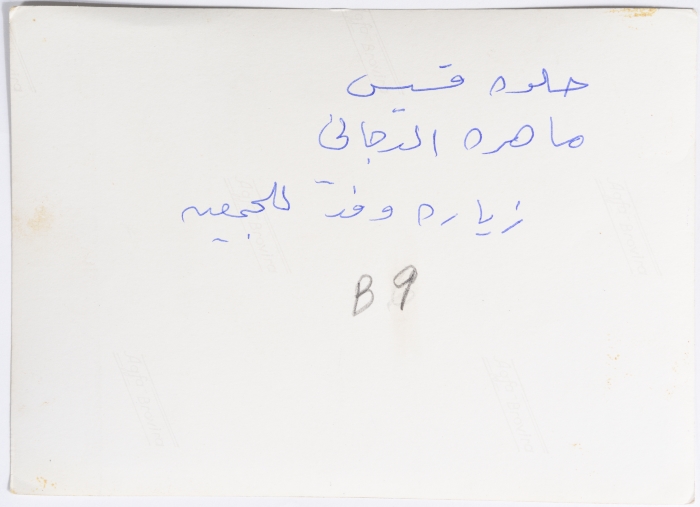 حلوه قسيس
ماهره الدجاني
زياره وفد للجمعيه
B 9